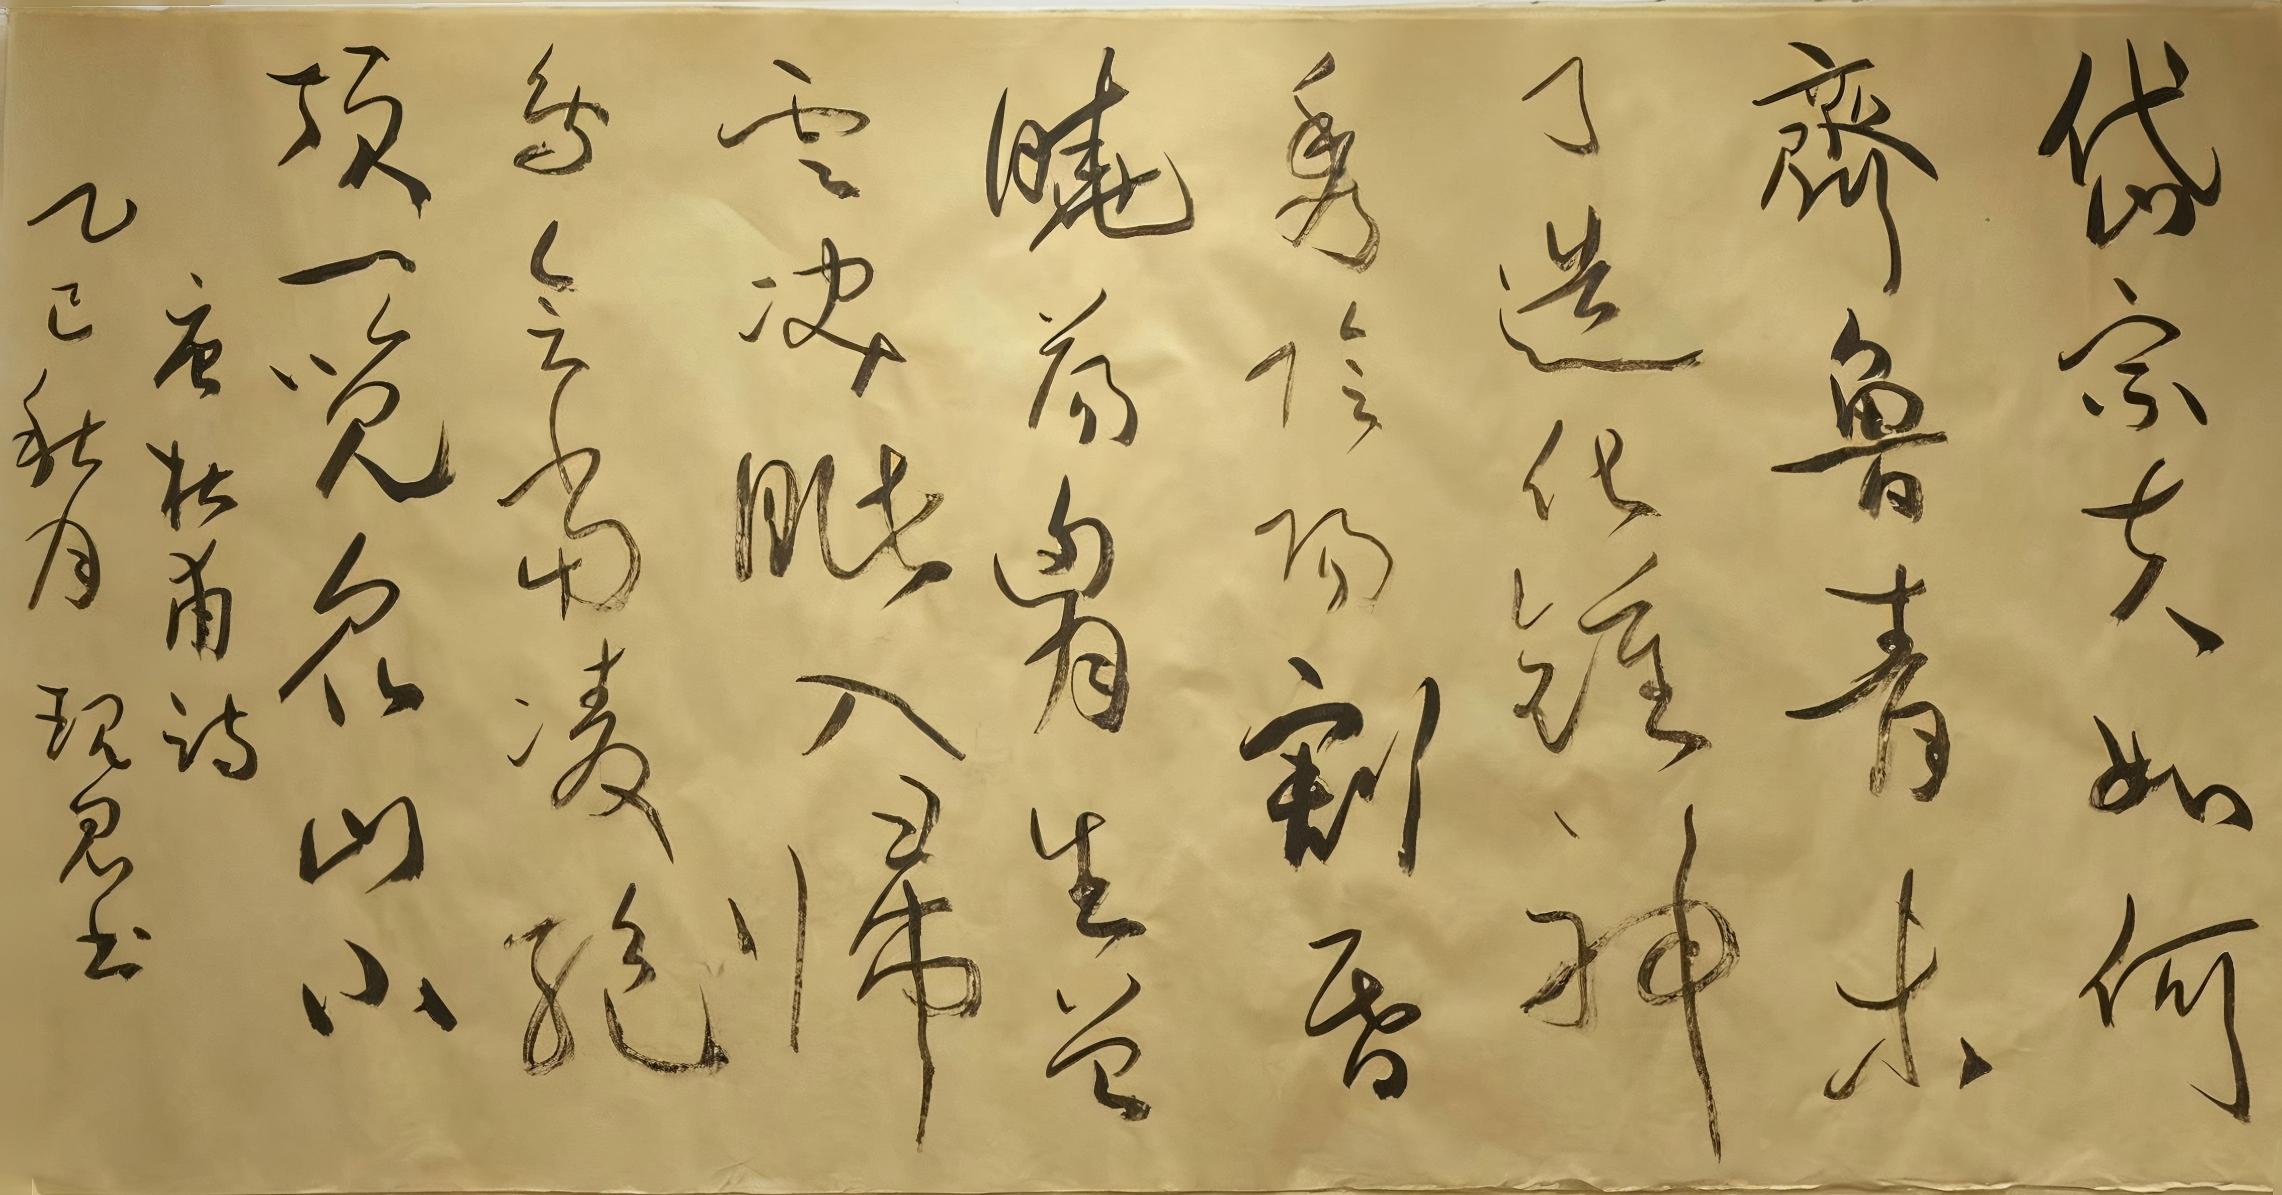 岱宗夫如何
齊魯青未
了造化鍾神
秀陰陽割昏
曉蕩胷生曾
雲决眦入歸
鳥會當凌絕
頂一覽眾山小
唐杜甫詩
乙巳秋月 书